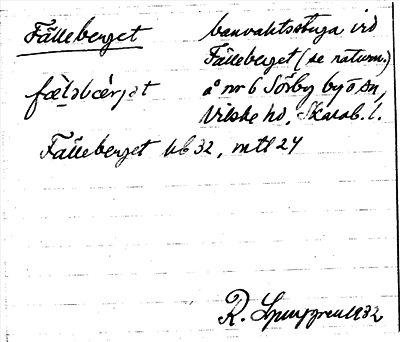 Fälleberget
banvaktsstuga vid
Fälleberget (se naturn.)
å nr 6 Sörby by o sn,
Vilske hd, Skarab. l.
Fälleberget kb 32, mtl 24
R. Ljunggren 1932